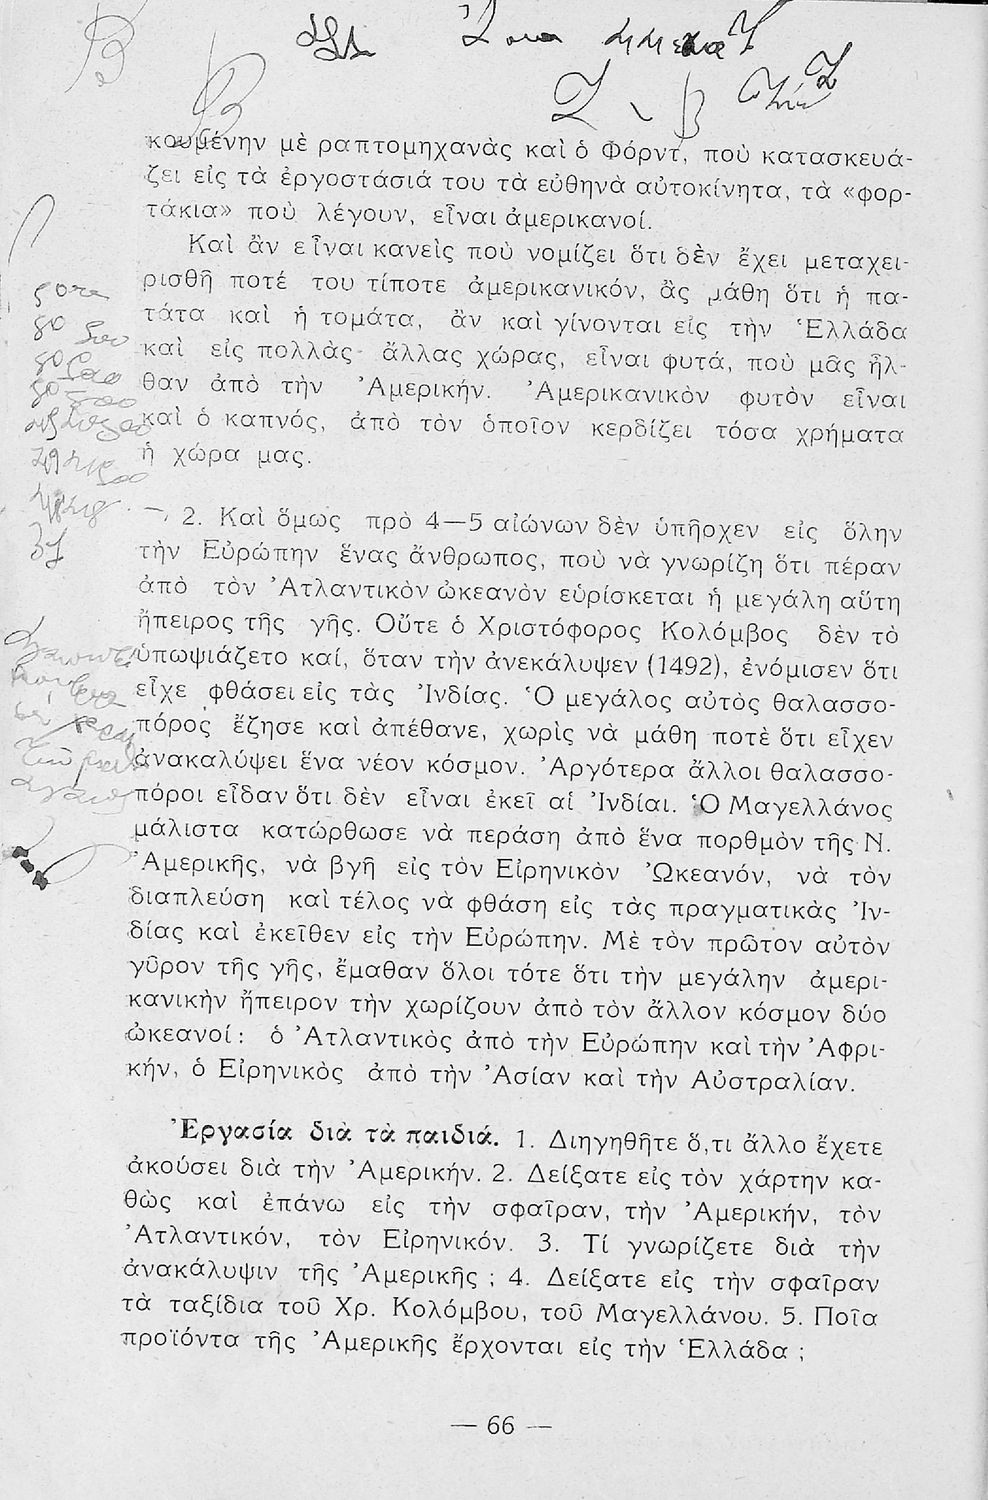 κουμένην μὲ ραπτομηχανὰς καὶ ὁ Φόρντ, ποὺ κατασκευά-
ζει εἰς τὰ ἐργοστάσιά του τὰ εὐθηνὰ αὐτοκίνητα, τὰ «φορ-
τάκια» ποὺ λέγουν, εἶναι ἀμερικανοί.
Καὶ ἂν εἶναι κανεὶς ποὺ νομίζει ὅτι δὲν ἔχει μεταχει-
ρισθῆ ποτέ του τίποτε ἀμερικανικόν, ἂς μάθη ὅτι ἡ πα-
τάτα καὶ ἡ τομάτα, ἂν καὶ γίνονται εἰς τὴν Ἑλλάδα
καὶ εἰς πολλὰς ἄλλας χώρας, εἶναι φυτά, ποὺ μᾶς ἦλ-
θαν ἀπὸ τὴν Ἀμερικήν. Ἀμερικανικὸν φυτὸν εἶναι
καὶ ὁ καπνός, ἀπὸ τὸν ὁποῖον κερδίζει τόσα χρήματα
ἡ χώρα μας.
2. Καὶ ὅμως πρὸ 4—5 αἰώνων δὲν ὑπῆρχεν εἰς ὅλην
τὴν Εὐρώπην ἕνας ἄνθρωπος, ποὺ νὰ γνωρίζη ὅτι πέραν
ἀπὸ τὸν Ἀτλαντικὸν ὠκεανὸν εὑρίσκεται ἡ μεγάλη αὕτη
ἤπειρος τῆς γῆς. Οὔτε ὁ Χριστόφορος Κολόμβος δὲν τὸ
ὑπωψιάζετο καί, ὅταν τὴν ἀνεκάλυψεν (1492), ἐνόμισεν ὅτι
εἶχε φθάσει εἰς τὰς Ἰνδίας. Ὁ μεγάλος αὐτὸς θαλασσο-
πόρος ἔζησε καὶ ἀπέθανε, χωρὶς νὰ μάθη ποτὲ ὅτι εἶχεν
ἀνακαλύψει ἕνα νέον κόσμον. Ἀργότερα ἄλλοι θαλασσο-
πόροι εἶδαν ὅτι δὲν εἶναι ἐκεῖ αἱ Ἰνδίαι. Ὁ Μαγελλάνος
μάλιστα κατώρθωσε νὰ περάση ἀπὸ ἕνα πορθμὸν τῆς Ν.
Ἀμερικῆς, νὰ βγῆ εἰς τὸν Εἰρηνικὸν Ὠκεανόν, νὰ τὸν
διαπλεύση καὶ τέλος νὰ φθάση εἰς τὰς πραγματικὰς Ἰν-
δίας καὶ ἐκεῖθεν εἰς τὴν Εὐρώπην. Μὲ τὸν πρῶτον αὐτὸν
γῦρον τῆς γῆς, ἔμαθαν ὅλοι τότε ὅτι τὴν μεγάλην ἀμερι-
κανικὴν ἤπειρον τὴν χωρίζουν ἀπὸ τὸν ἄλλον κόσμον δύο
ὠκεανοί: ὁ Ἀτλαντικὸς ἀπὸ τὴν Εὐρώπην καὶ τὴν Ἀφρι-
κήν, ὁ Εἰρηνικὸς ἀπὸ τὴν Ἀσίαν καὶ τὴν Αὐστραλίαν.
Ἐργασία διὰ τὰ παιδιά. 1. Διηγηθῆτε ὅ,τι ἄλλο ἔχετε
ἀκούσει διὰ τὴν Ἀμερικήν. 2. Δείξατε εἰς τὸν χάρτην κα-
θὼς καὶ ἐπάνω εἰς τὴν σφαῖραν, τὴν Ἀμερικήν, τὸν
Ἀτλαντικόν, τὸν Εἰρηνικόν. 3. Τί γνωρίζετε διὰ τὴν
ἀνακάλυψιν τῆς Ἀμερικῆς ; 4. Δείξατε εἰς τὴν σφαῖραν
τὰ ταξίδια τοῦ Χρ. Κολόμβου, τοῦ Μαγελλάνου. 5. Ποῖα
προϊόντα τῆς Ἀμερικῆς ἔρχονται εἰς τὴν Ἑλλάδα ;
— 66 —